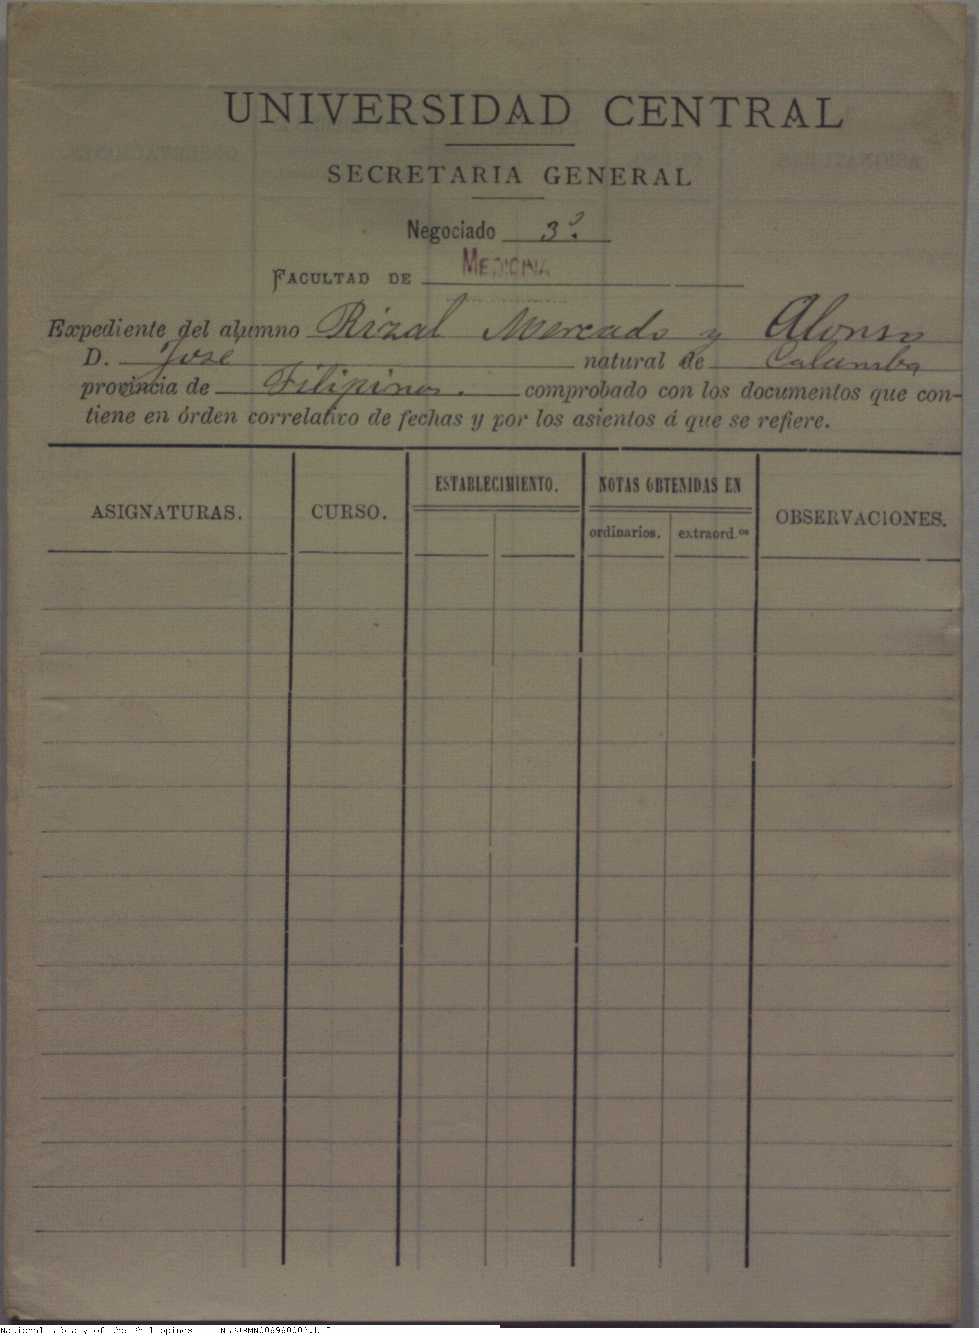 UNIVERSIDAD CENTRAL
SECRETARIA GENERAL
Negociado 3º.
FACULTAD DE MEDICINA
Expediente del alumno Rizal Mercado y Alonso
D. José natural de Calamba
provincia de Filipinas. comprobado con los documentos que con-
tiene en órden correlativo de fechas y por los asientos á que se refiere.
ASIGNATURAS. CURSO. ESTABLECIMIENTO. NOTAS OBTENIDAS EN OBSERVACIONES.
ordinarios. extraord.os
National Library of the Philippines